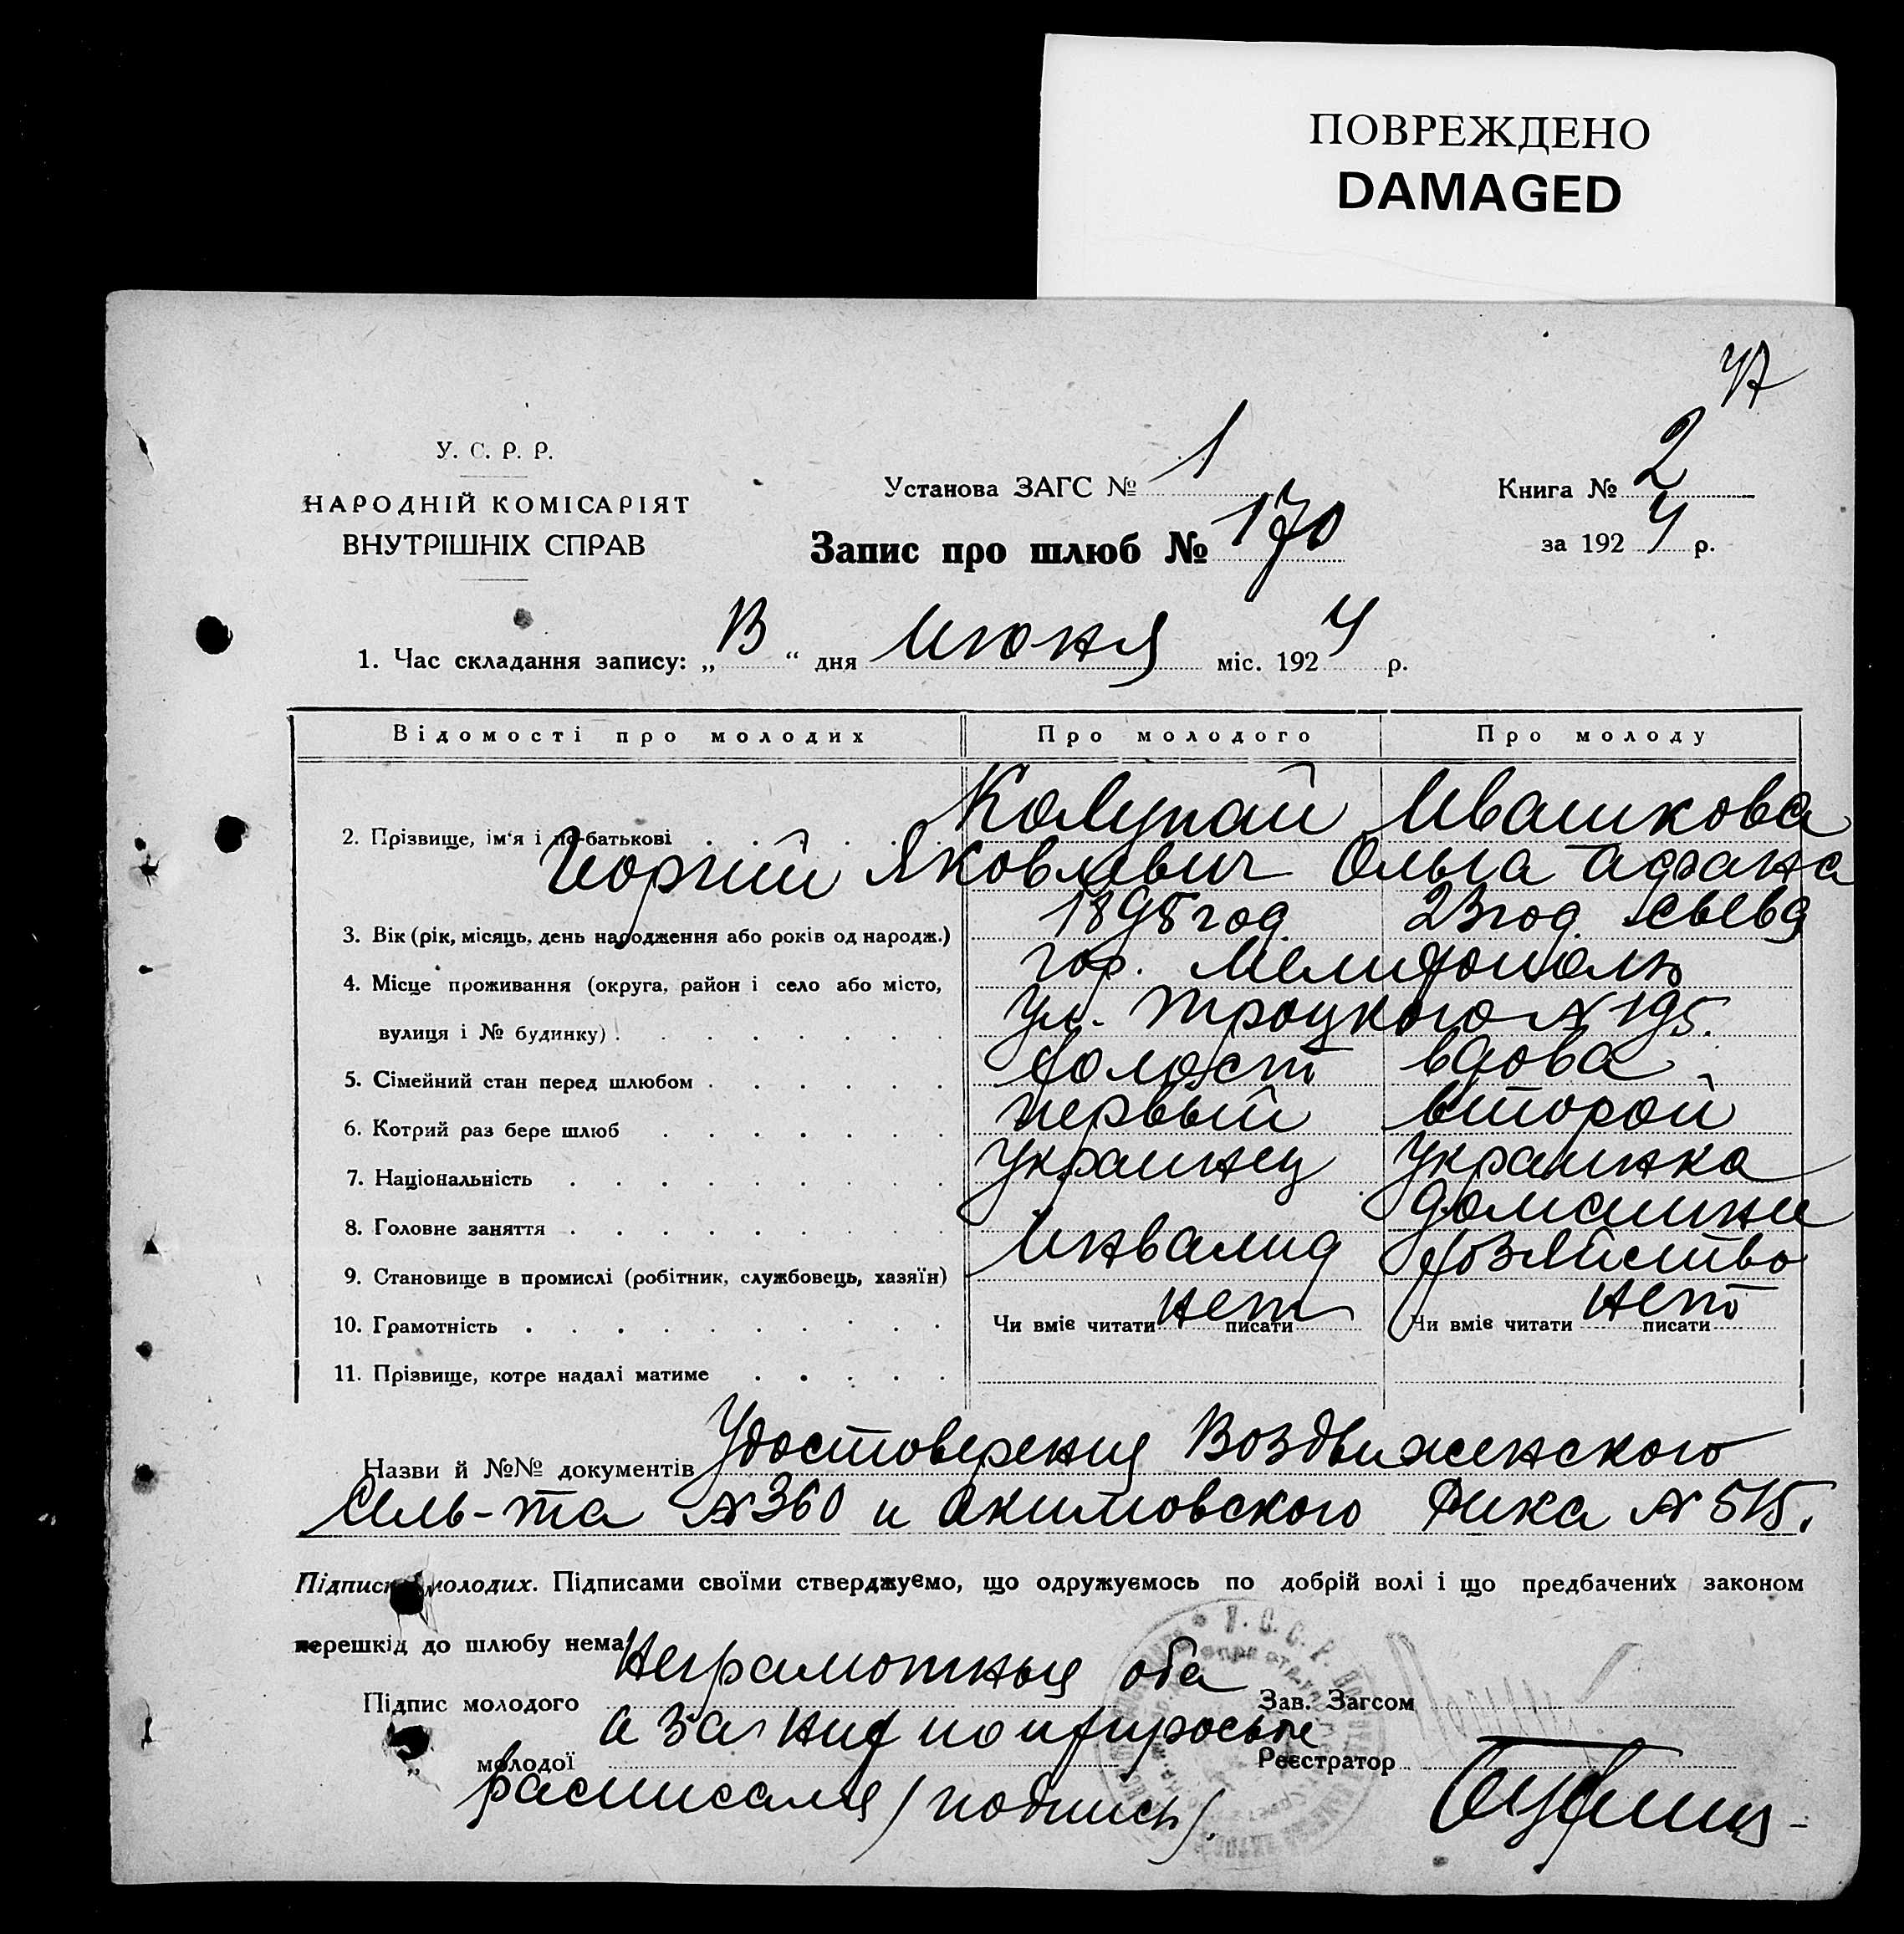 ПОВРЕЖДЕНО
DAMAGED
У. С. Р. Р.
НАРОДНІЙ КОМІСАРІЯТ
ВНУТРІШНІХ СПРАВ
Установа ЗАГС № 1
Запис про шлюб № 170
Книга № 2
за 1924 р.
1. Час складання запису: „13“ дня Июня міс. 1924 р.
Відомості про молодих Про молодого Про молоду
2. Прізвище, ім'я і по-батькові Колупай Ивашкова
Георгий Яковлевич Ольга Афана
сьевя
3. Вік (рік, місяць, день народження або років од народж.) 1898 год 23 год.
4. Місце проживання (округа, район і село або місто, гор. Мелитополь
вулиця і № будинку) ул. Троцкого № 195.
5. Сімейний стан перед шлюбом холост вдова
6. Котрий раз бере шлюб первый второй
7. Національність Украинец Украинка
8. Головне заняття Инвалид домашне
хозяйство
9. Становище в промислі (робітник, службовець, хазяїн)
10. Грамотність Чи вміє читати нет писати Чи вміє читати нет писати
11. Прізвище, котре надалі матиме
Назви й №№ документів Удостоверения Воздвиженского
Сель-та № 360 и Акимовского Рика № 515.
Підписи молодих. Підписами своїми стверджуємо, що одружуємось по добрій волі і що предбачених законом
перешкід до шлюбу нема
Неграмотные оба
Підпис молодого
Зав. Загсом
а за них по их просьбе
„ молодої
Реєстратор
расписался (подпись).